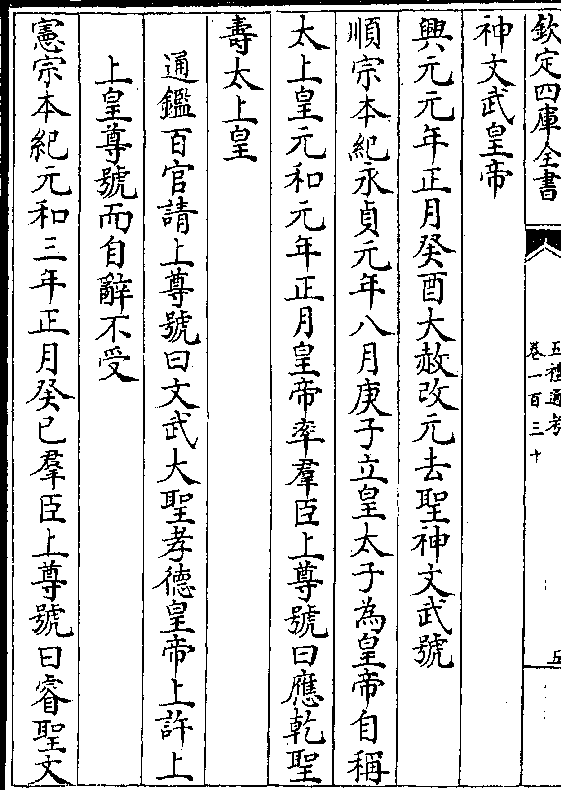 欽定四庫全書
五禮通考
卷一百三十
五
神文武皇帝
興元元年正月癸酉大赦改元去聖神文武號
順宗本紀永貞元年八月庚子立皇太子為皇帝自稱
太上皇元和元年正月皇帝率羣臣上尊號曰應乾聖
壽太上皇
通鑑百官請上尊號曰文武大聖孝德皇帝上許上
上皇尊號而自辭不受
憲宗本紀元和三年正月癸巳羣臣上尊號曰睿聖文